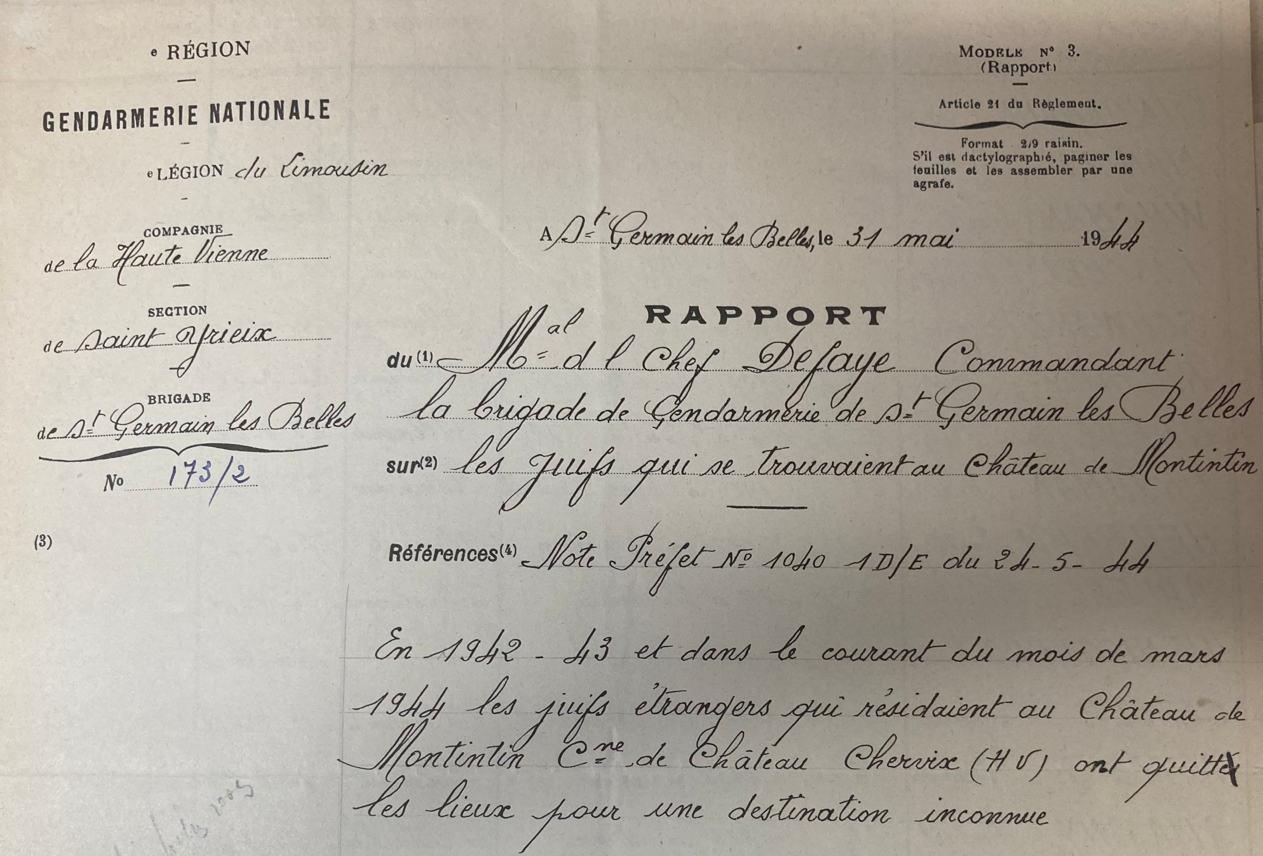 e RÉGION
GENDARMERIE NATIONALE
e LÉGION du Limousin
COMPAGNIE
de la Haute Vienne
SECTION
de Saint Yrieix
BRIGADE
de St Germain les Belles
No 173/2
(3)
MODÈLE N° 3.
(Rapport)
Article 21 du Règlement.
Format 2/9 raisin.
S'il est dactylographié, paginer les
feuilles et les assembler par une
agrafe.
A St Germain les Belles, le 31 mai 1944
RAPPORT
du (1) Mal d l Chef Defaye Commandant
la brigade de Gendarmerie de St Germain les Belles
sur (2) les juifs qui se trouvaient au Château de Montintin
Références (4) Note Préfet No 1040 1D/E du 24-5-44
En 1942-43 et dans le courant du mois de mars
1944 les juifs étrangers qui résidaient au Château de
Montintin Cne de Château Chervix (HV) ont quitté
les lieux pour une destination inconnue